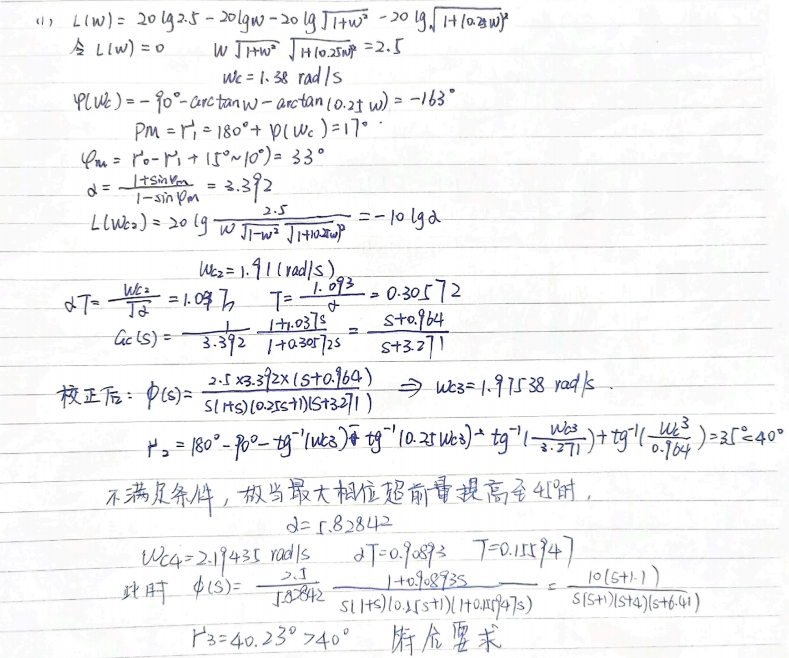 (1) L(w) = 20lg2.5 - 20lgw - 20lg√(1+w²) - 20lg√(1+(0.25w)²)
令 L(w)=0 w√(1+w²) √(1+(0.25w)²) = 2.5
wc = 1.38 rad/s
φ(wc) = -90° - arctanw - arctan(0.25w) = -163°
PM = r₁ = 180° + φ(wc) = 17°
φm = r₀ - r₁ + (5°~10°) = 33°
α = (1+sinφm)/(1-sinφm) = 3.392
L(wc2) = 20lg 2.5/(w√(1-w²) √(1+(0.25w)²)) = -10lgα
wc2 = 1.91 (rad/s)
αT = wc2/√α = 1.037 T = 1.093/α = 0.30572
Gc(s) = 1/3.392 (1+1.037s)/(1+0.30572s) = (s+0.964)/(s+3.271)
校正后: φ(s) = 2.5×3.392×(s+0.964)/(s(1+s)(0.25s+1)(s+3.271)) ⇒ wc3 = 1.97538 rad/s.
r₂ = 180° - 90° - tg⁻¹(wc3) - tg⁻¹(0.25wc3) - tg⁻¹(wc3/3.271) + tg⁻¹(wc3/0.964) = 35° < 40°
不满足条件, 故当最大相位超前量提高至45°时,
α = 5.82842
wc4 = 2.19435 rad/s αT = 0.90893 T = 0.155947
此时 φ(s) = 2.5/5.82842 (1+0.90893s)/(s(1+s)(0.25s+1)(1+0.155947s)) = 10(s+1.1)/(s(s+1)(s+4)(s+6.41))
r₃ = 40.23° > 40° 符合要求